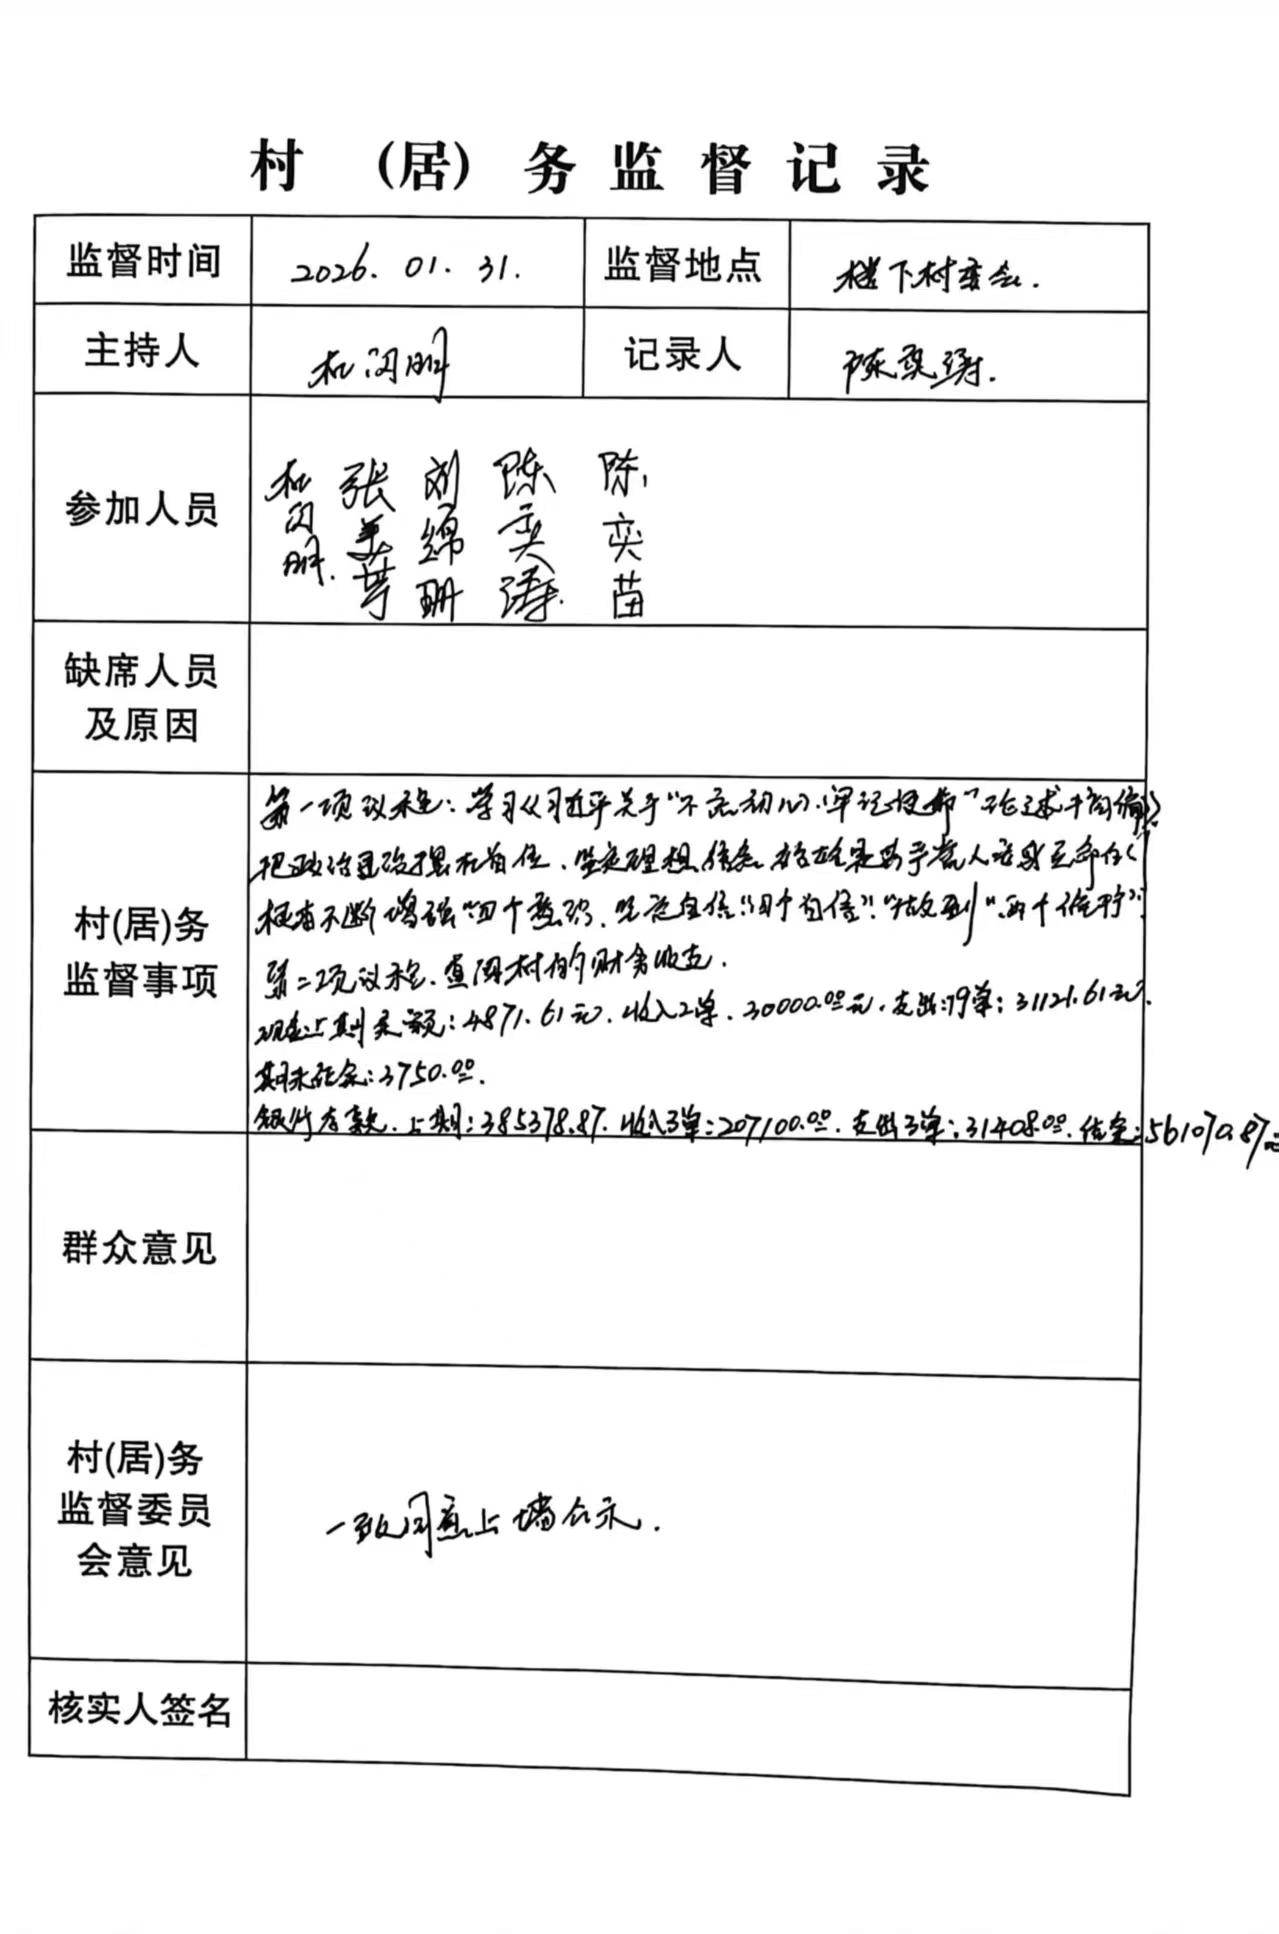 村 (居) 务监督记录
监督时间 2026.01.31. 监督地点 楼下村委会.
主持人 杜闪明 记录人 陈奕涛.
参加人员 杜闪明. 张美芳 刘绵珊 陈奕涛. 陈奕苗
缺席人员
及原因
村(居)务
监督事项
第一项议程: 学习《习近平关于"不忘初心、牢记使命"论述
把政治建设摆在首位、坚定理想信念
不断增强"四个意识、坚定自信"四个自信"."做到"两个维护"
第二项议程、查阅村的财务收支.
现金上期余额: 4871.61元. 收入2单. 30000.00元. 支出:79单: 31121.61元.
期末结余: 3750.00.
银行存款. 上期: 385378.87. 收入3单: 207100.00. 支出3单: 31408.00. 结余: 561070.87元
群众意见
村(居)务
监督委员
会意见
一致同意上墙公示.
核实人签名